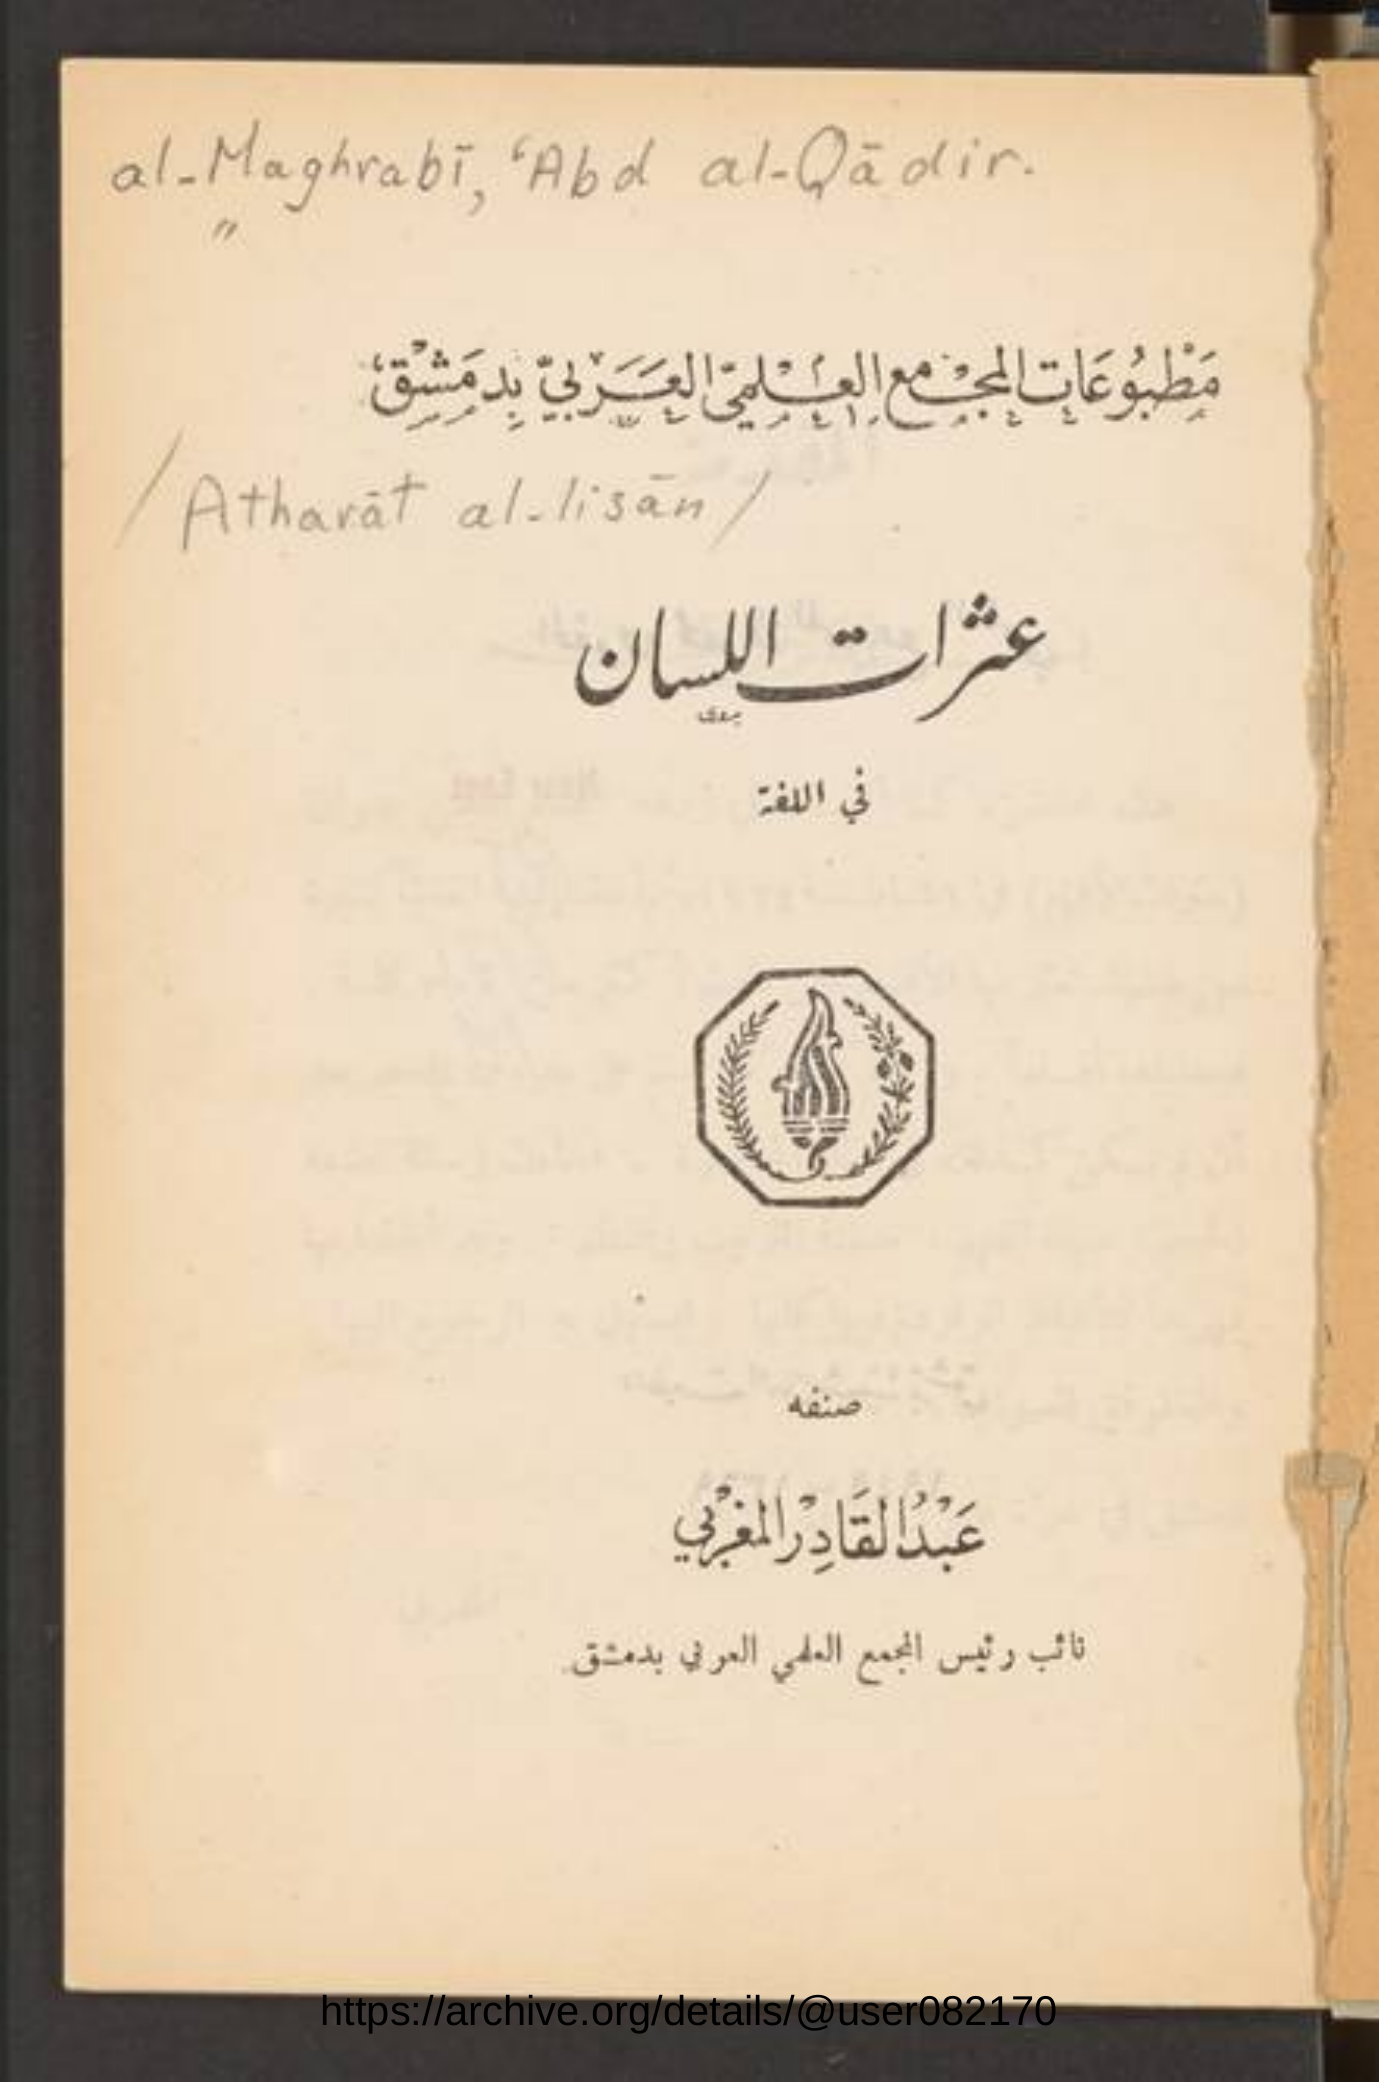 al-Maghrabī, ʻAbd al-Qādir.
"
مَطْبُوعَات المجْمع العِلميّ العَرَبيّ بِدمَشْق
/ Atharāt al-lisān /
عثرات اللسان
في اللغة
صنفه
عَبْدُ القَادِر المغْرَبي
نائب رئيس المجمع العلمي العربي بدمشق
https://archive.org/details/@user082170